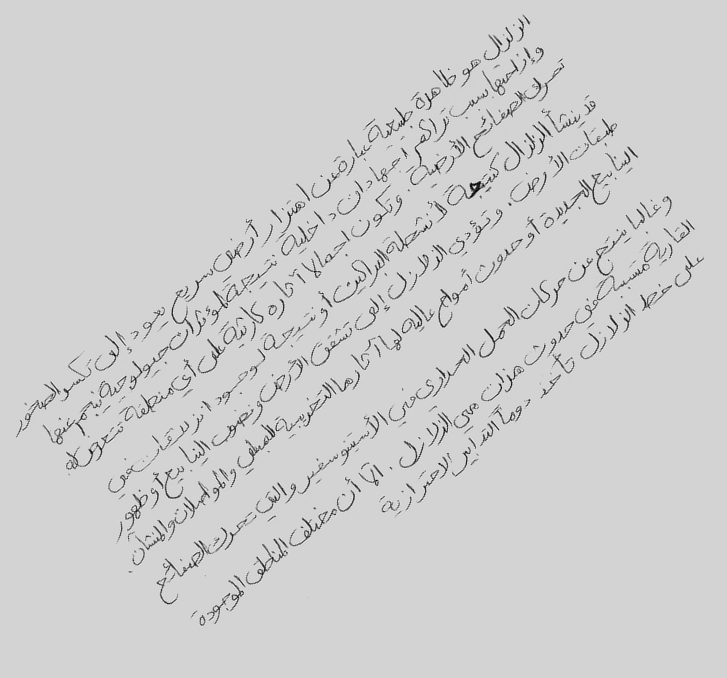 الزلزال هو ظاهرة طبيعية عبارة عن اهتزاز أرضي سريع يعود إلى تكسر الصخور
وإزاحتها بسبب تراكم اجهادات داخلية نتيجة لمؤثرات جيولوجية ينجم عنها
تحرك الصفائح الأرضية. وتكون اجمالا آثاره كارثية على أي منطقة تتعرض له
قد ينشأ الزلزال كنتيجة لأنشطة البراكين أو نتيجة لوجود انزلاقات في
طبقات الأرض. وتؤدي الزلازل إلى تشقق الأرض ونضوب الينابيع أو ظهور
الينابيع الجديدة أو حدوث أمواج عالية لها آثارها التخريبية للمباني والمواصلات والمنشآت.
وغالبا ينتج عن حركات الحمل الحراري في الأستينوسفير والتي تحرك الصفائح
القارية متسببة في حدوث هزات هي الزلازل. كما أن مختلف المناطق الموجودة
على خط الزلازل تأخذ دوماً التدابير الاحترازية